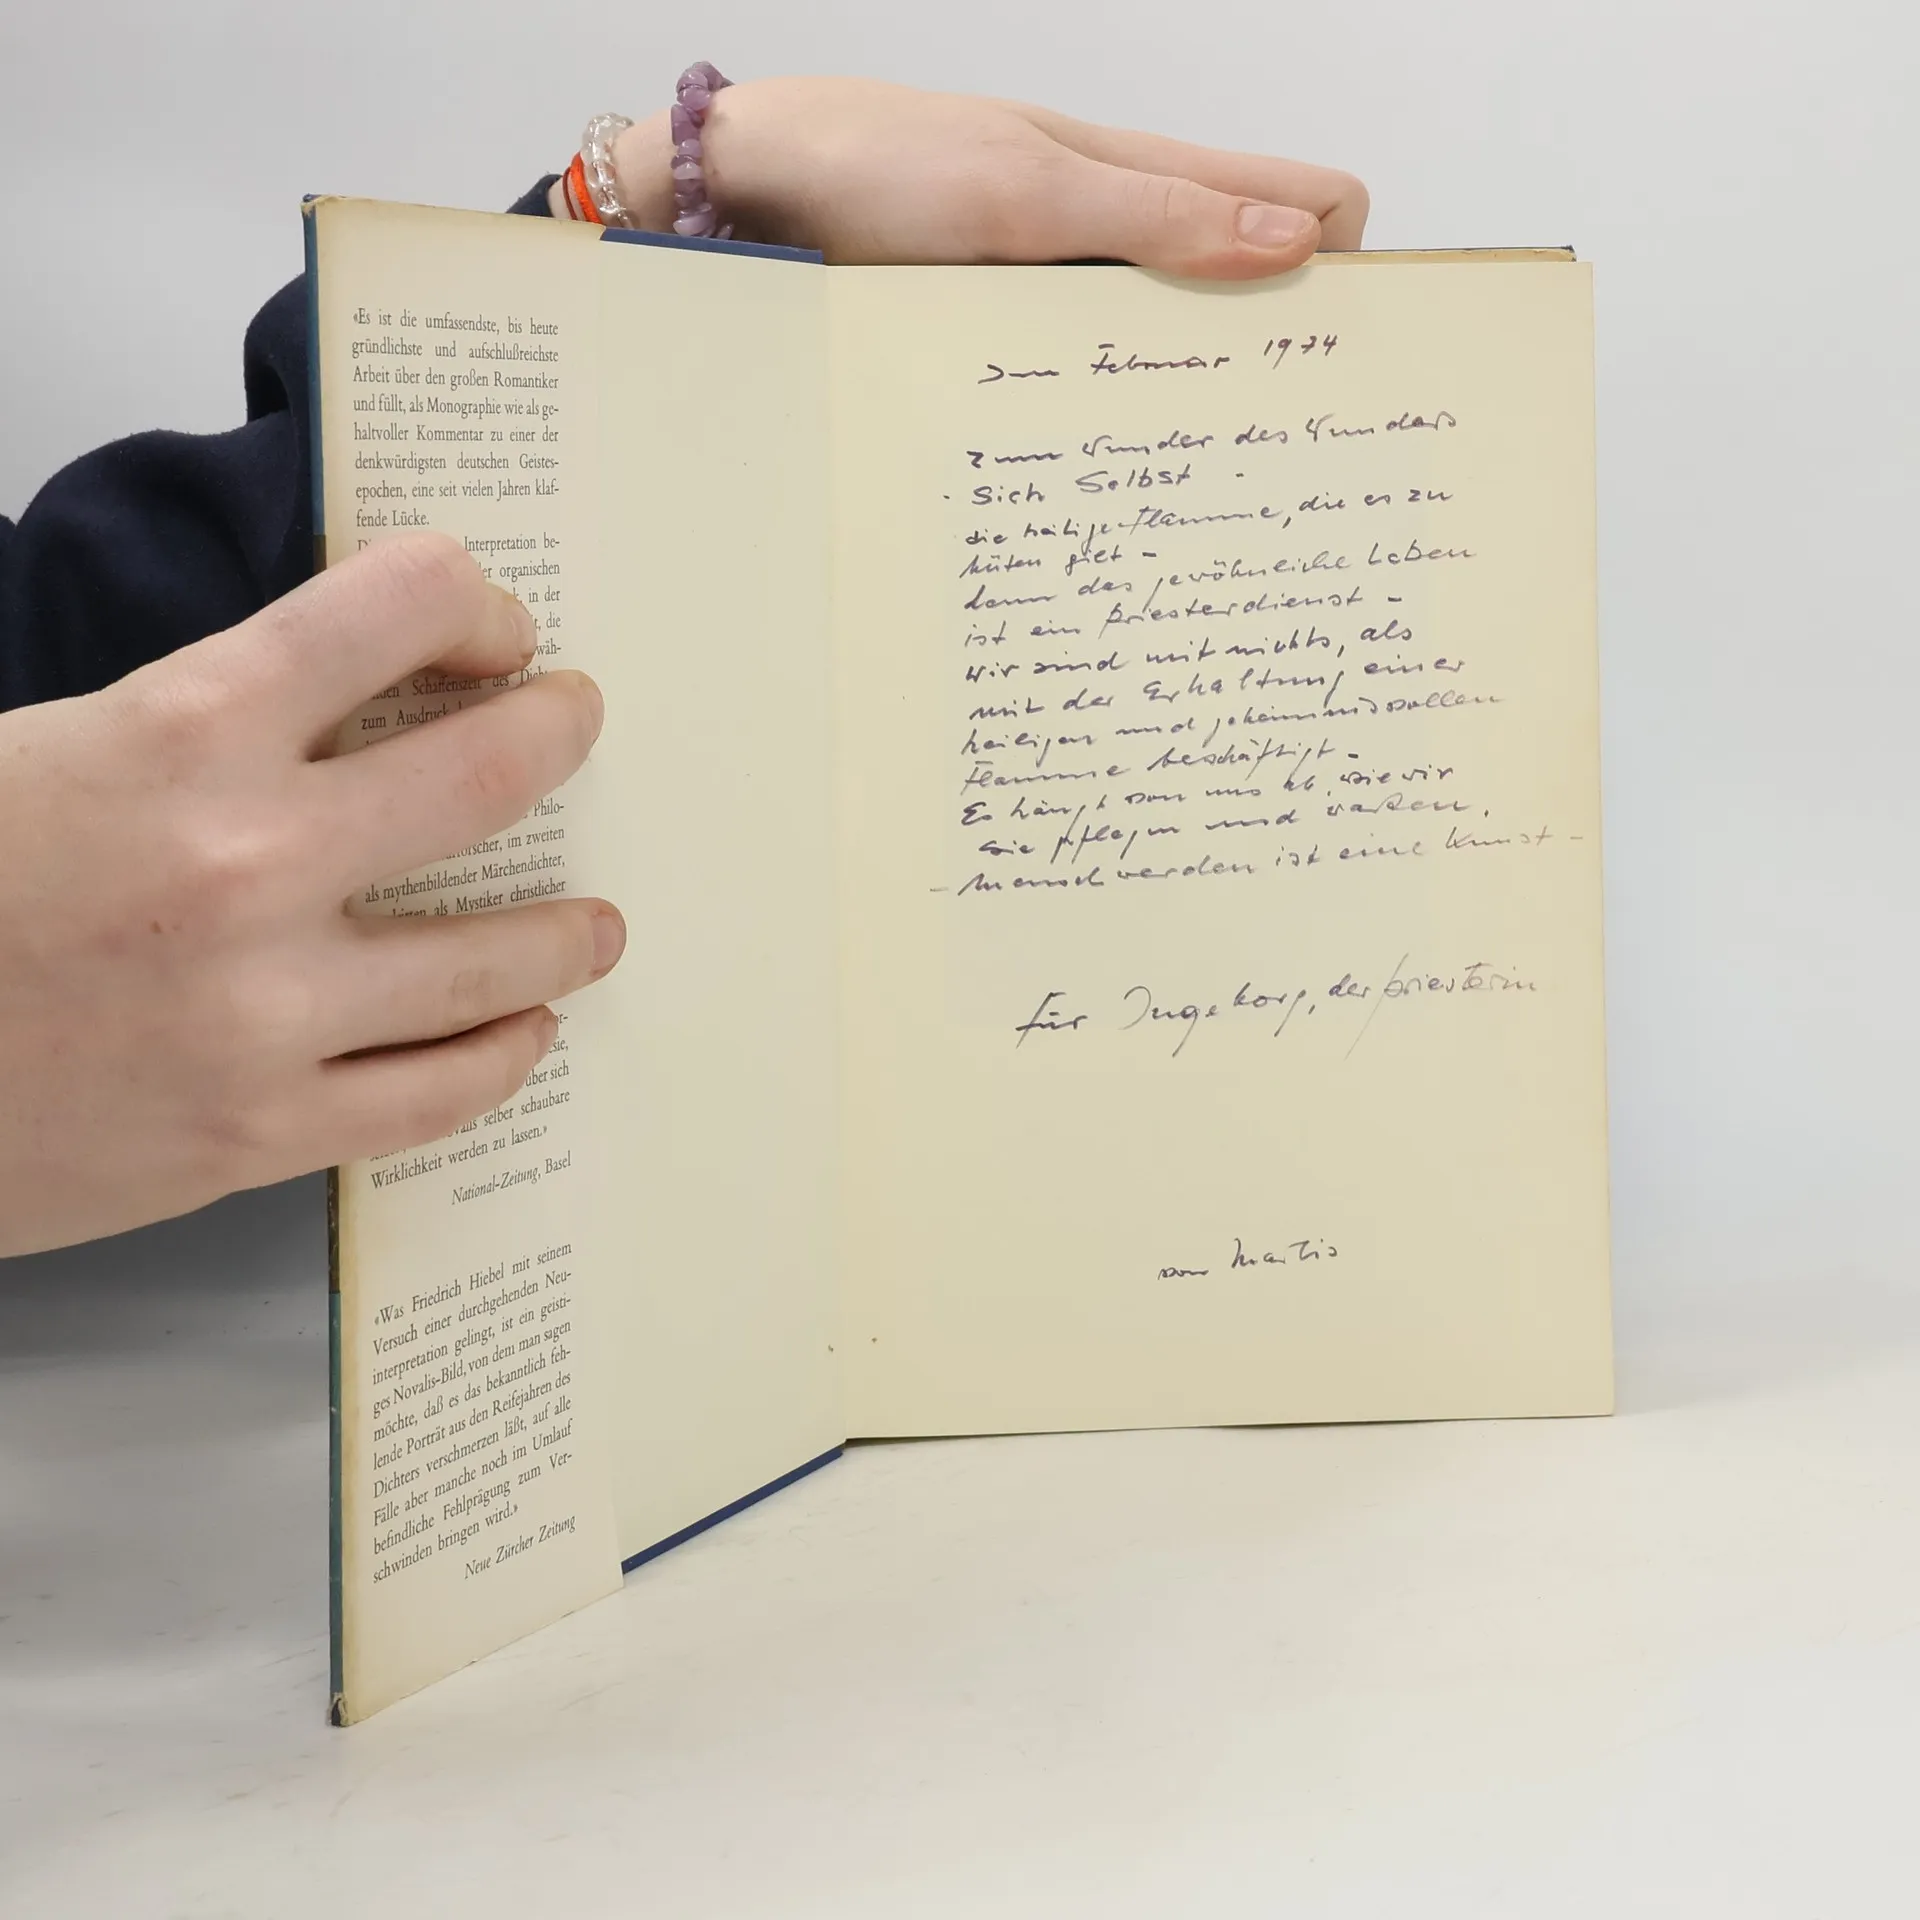 «Es ist die umfassendste, bis heute
gründlichste und aufschlußreichste
Arbeit über den großen Romantiker
und füllt, als Monographie wie als ge-
haltvoller Kommentar zu einer der
denkwürdigsten deutschen Geistes-
epochen, eine seit vielen Jahren klaf-
fende Lücke.
Interpretation be-
organischen
in der
die
wäh-
Schaffenszeit des
zum Ausdruck
Philo-
im zweiten
als mythenbildender Märchendichter,
als Mystiker christlicher
über sich
selber schaubare
Wirklichkeit werden zu lassen.»
National-Zeitung, Basel
«Was Friedrich Hiebel mit seinem
Versuch einer durchgehenden Neu-
interpretation gelingt, ist ein geisti-
ges Novalis-Bild, von dem man sagen
möchte, daß es das bekanntlich feh-
lende Porträt aus den Reifejahren des
Dichters verschmerzen läßt, auf alle
Fälle aber manche noch im Umlauf
befindliche Fehlprägung zum Ver-
schwinden bringen wird.»
Neue Zürcher Zeitung
Im Februar 1974
zum Wunder des Wunders
- Sich Selbst -
die heilige Flamme, die es zu
hüten gilt -
denn das gewöhnliche Leben
ist ein Priesterdienst -
wir sind mit nichts, als
mit der Erhaltung einer
heiligen und geheimnisvollen
Flamme beschäftigt -
Es hängt von uns ab, wie wir
sie pflegen und warten.
- Mensch werden ist eine Kunst -
Für Ingeborg, der Priesterin
von